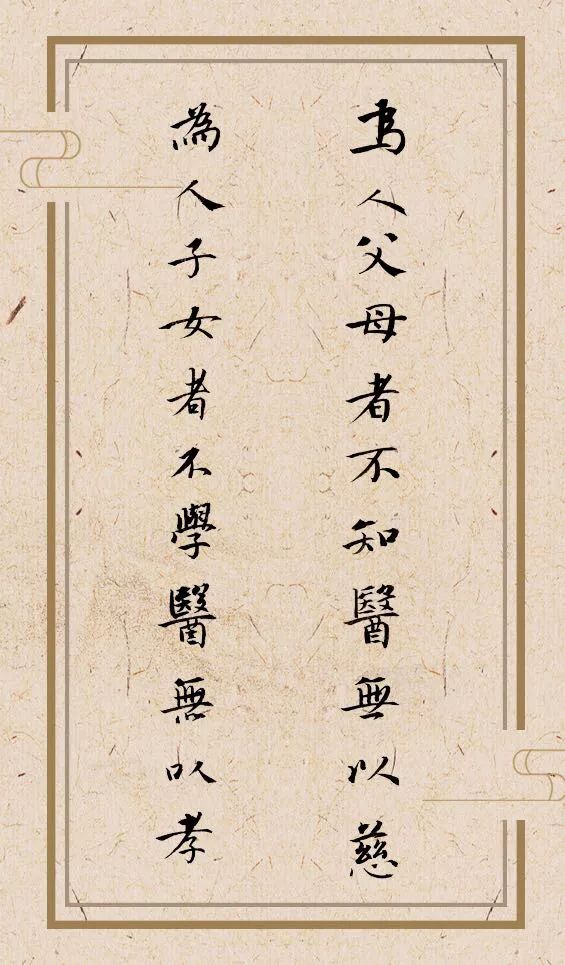 為人父母者不知醫無以慈
為人子女者不學醫無以孝